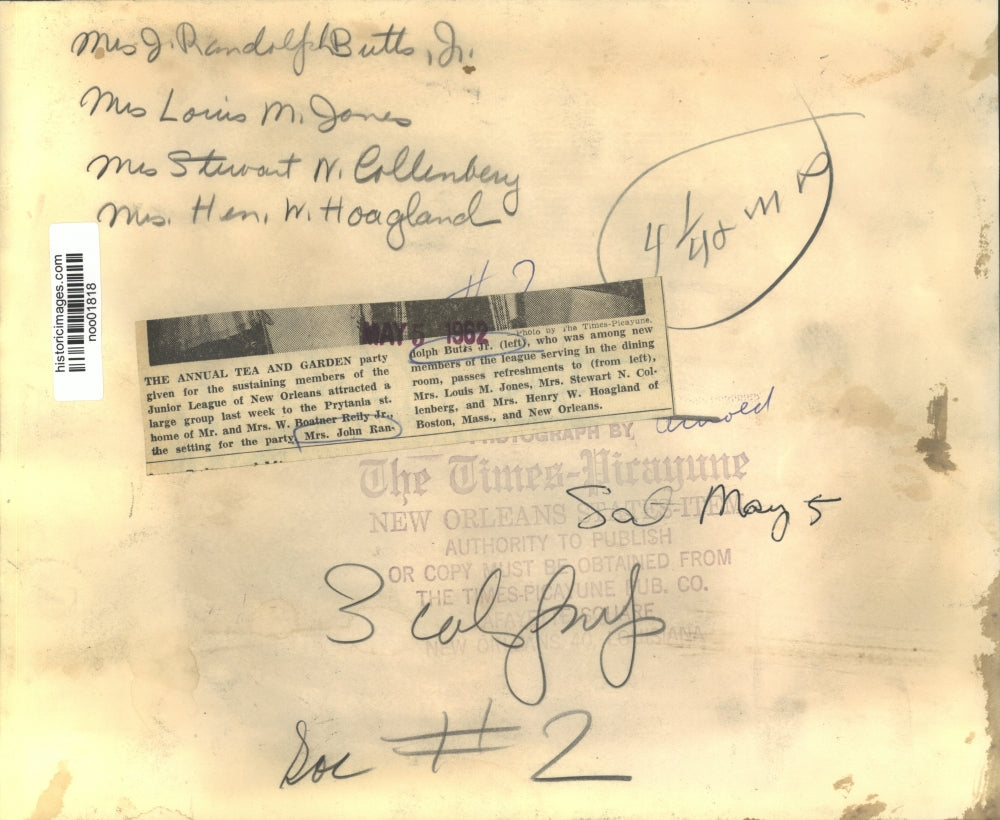 Mrs J. Randolph Butts, Jr.
Mrs Louis M. Jones
Mrs Stewart N. Collenberg
Mrs. Hen. W. Hoagland
historicimages.com
noo01818
#2
MAY 5 1962
Photo by The Times-Picayune.
THE ANNUAL TEA AND GARDEN party
given for the sustaining members of the
Junior League of New Orleans attracted a
large group last week to the Prytania st.
home of Mr. and Mrs. W. Boatner Reily Jr.,
the setting for the party. Mrs. John Ran-
dolph Butts Jr. (left), who was among new
members of the league serving in the dining
room, passes refreshments to (from left),
Mrs. Louis M. Jones, Mrs. Stewart N. Col-
lenberg, and Mrs. Henry W. Hoagland of
Boston, Mass., and New Orleans.
PHOTOGRAPH BY
The Times-Picayune
NEW ORLEANS STATES-ITEM
Sat May 5
AUTHORITY TO PUBLISH
OR COPY MUST BE OBTAINED FROM
THE TIMES-PICAYUNE PUB. CO.
LAFAYETTE SQUARE
NEW ORLEANS 40, LOUISIANA
3 col
Soc #2